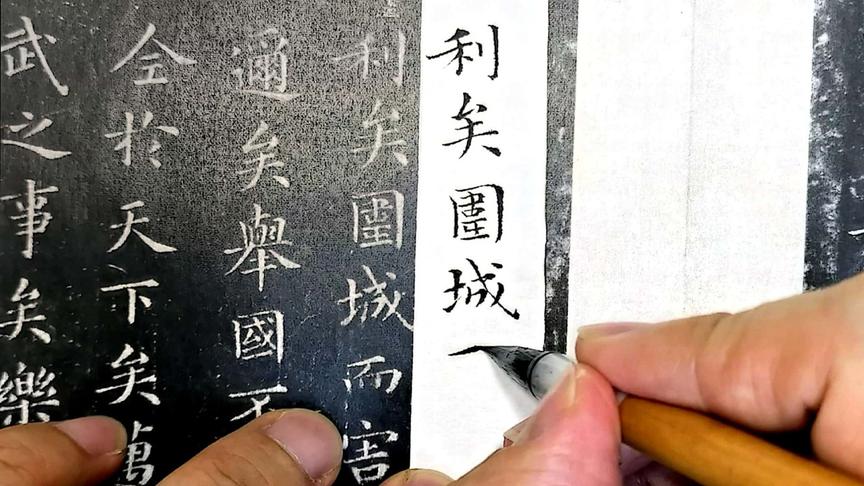 利矣圍城
利矣圍城而害
邇矣舉國不
全於天下矣
武之事矣樂